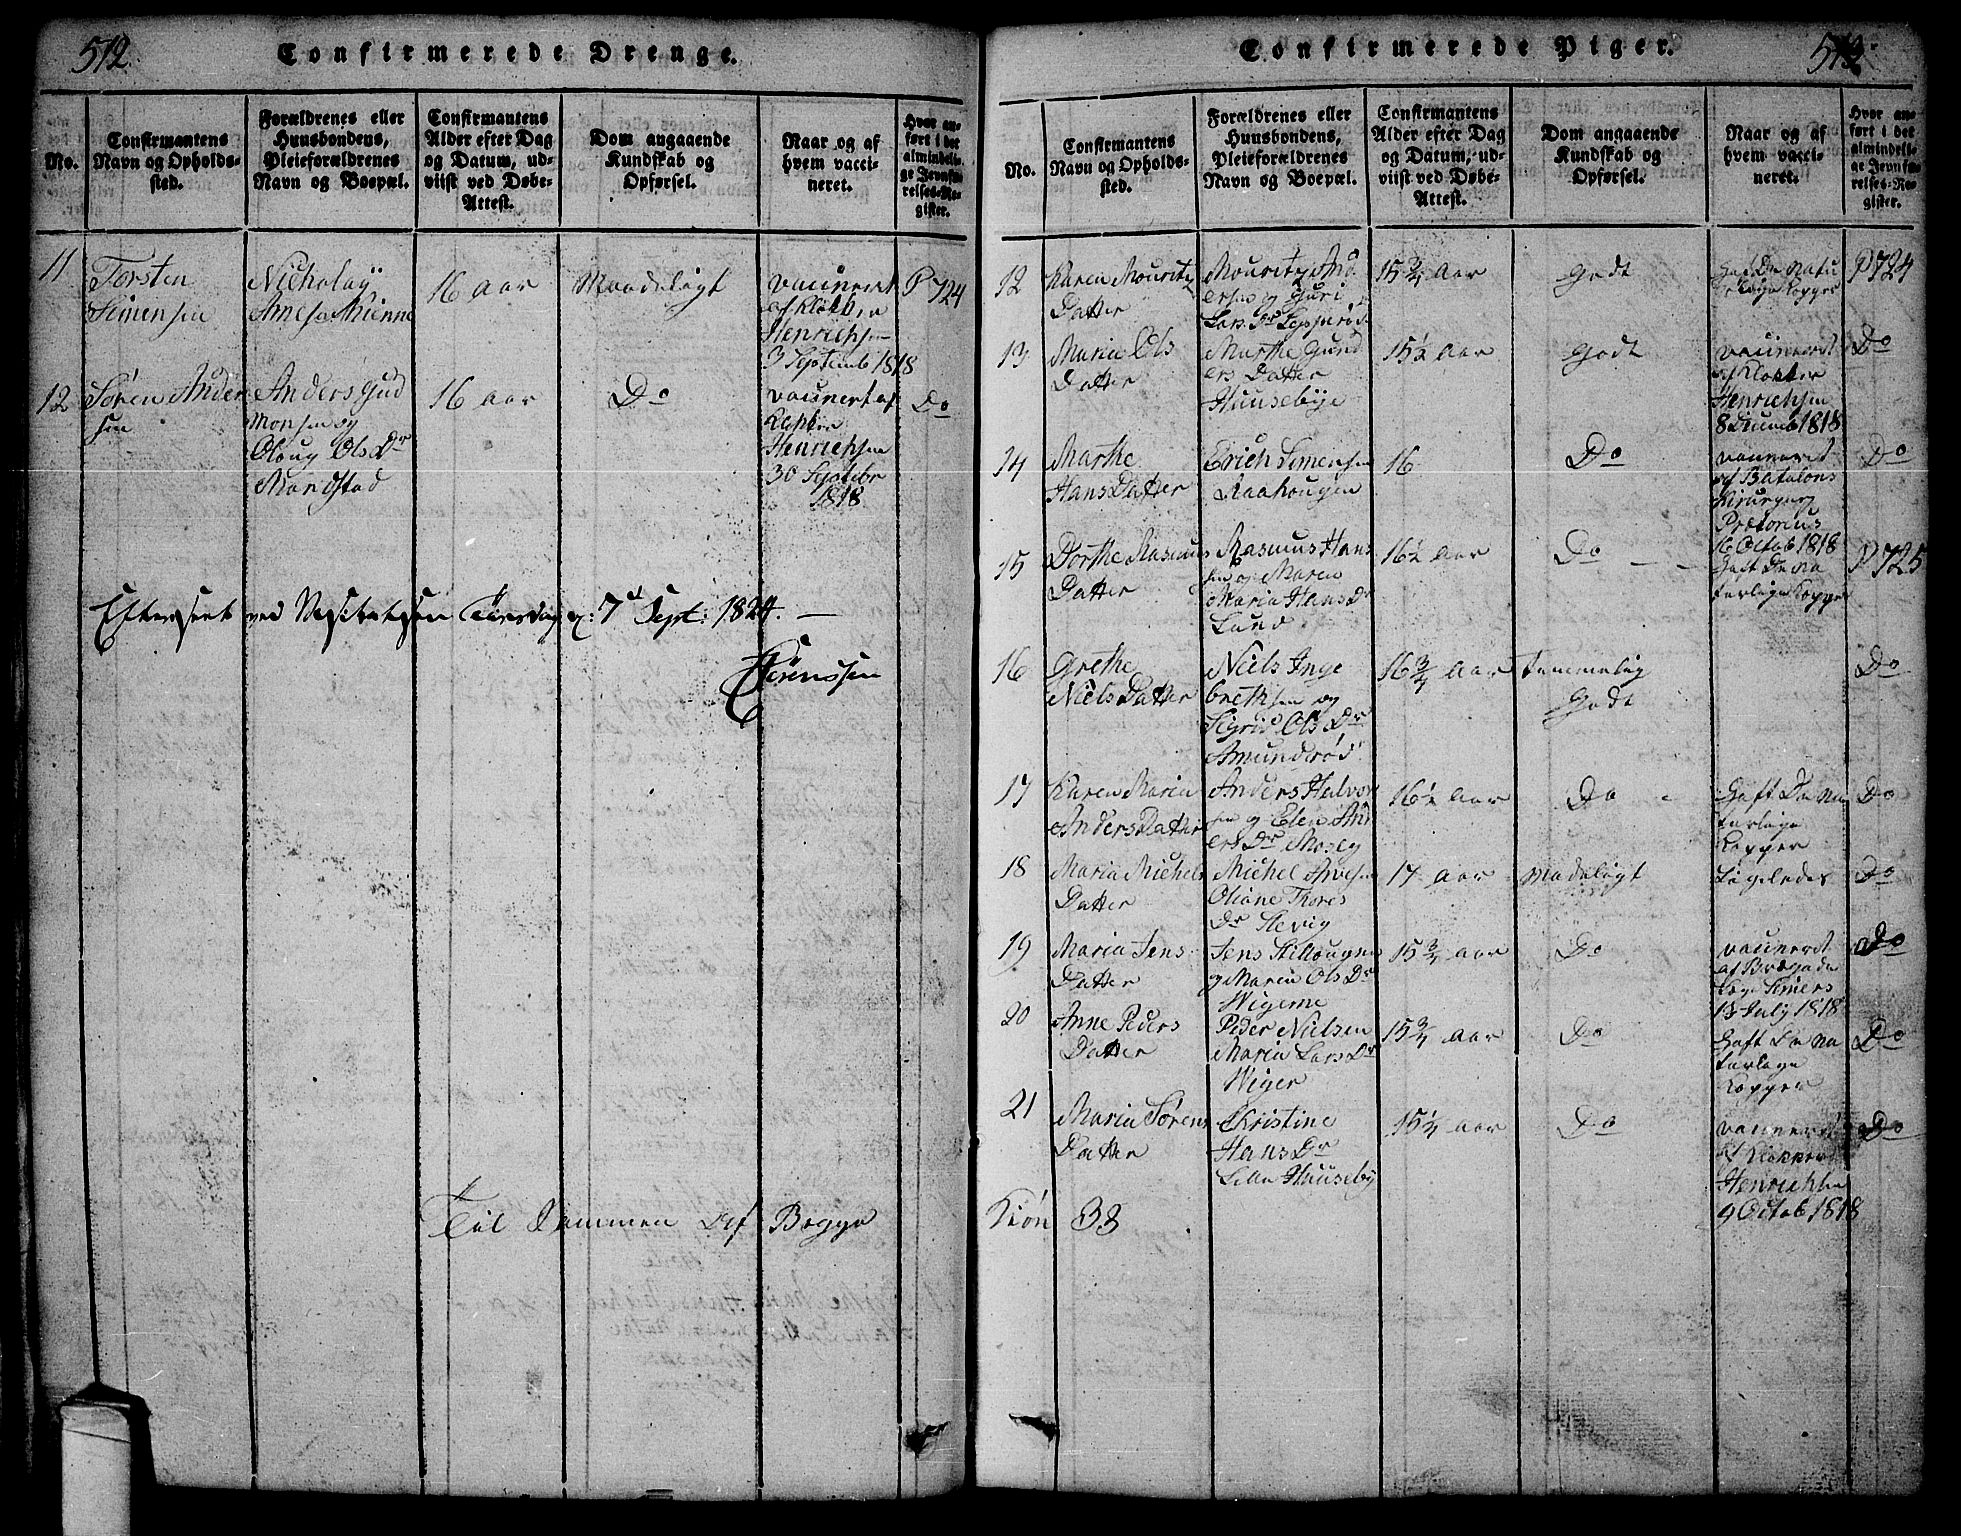 512.
Confirmerede Drenge.
No.
Confirmantens
Navn og Opholds-
sted.
Forældrenes eller
Huusbondens,
Pleieforældrenes
Navn og Boepæl.
Confirmantens
Alder efter Dag
og Datum, ud-
viist ved Døbe-
Attest.
Dom angaaende
Kundskab og
Opførsel.
Naar og af
hvem vacci-
neret.
Hvor an-
ført i det
almindeli-
ge Jevnfø-
relses-Re-
gister.
11
Torsten
Simensen
Nicholay
16 aar
Maadeligt
vaccineret
af Klokker
Henrichsen
3 Septemb 1818
P 724
12
Søren Ander
sen
Anders Gud
Monsen og
Oloug Ols Dr
Mandstad
16 aar
Do
vaccinert af
Klokker
Henrichsen
30 Septbr
1818
Do
Efterseet ved Visitatsen Tirsdag d. 7d Sept: 1824. —
Sørenssen
Til Drammen Bogge
Confirmerede Piger.
No.
Confirmantens
Navn og Opholds-
sted.
Forældrenes eller
Huusbondens,
Pleieforældrenes
Navn og Boepæl.
Confirmantens
Alder efter Dag
og Datum, ud-
viist ved Døbe-
Attest.
Dom angaaende
Kundskab og
Opførsel.
Naar og af
hvem vacci-
neret.
Hvor an-
ført i det
almindeli-
ge Jevnfø-
relses-Re-
gister.
12
Karen Mouritz
Datter
Mouritz And
ersen og Guri
Lars Dr
15 3/4 aar
Godt
Haft De Natu
rlige Kopper
P 724
13
Maria Ols
Datter
Marthe Gund
ers Datter
Huusebye
15 1/2 aar
Godt
vaccineret
af Klokker
Henrichsen
8 Decemb 1818
Do
14
Marthe
Hans Datter
Erich Simensen
Raahougen
16
Do
vaccineret
af Batalons
Kirurgus
Prætorius
16 Octob 1818
Do
15
Dorthe Rasmus
Datter
Rasmus Hans
sen og Maren
Maria Hans Dr
Lund
16 1/2 aar
Do
Haft De na
turlige Kopper
P 725
16
Grethe
Niels Datter
Niels Inge
brethsen og
Sigrid Ols Dr
Amundrød
16 3/4 aar
temmelig
Godt
Do
17
Karen Maria
Anders Datter
Anders Halvor
sen og Elen And
ers Dr Mosey
16 1/2 aar
Do
Haft De na
turlige
Kopper
Do
18
Maria Michels
Datter
Michel Arvesen
Oliane Thores
Dr Slevig
17 aar
Madeligt
Ligeledes
Do
19
Maria Jens
Datter
Jens
og Maren Ols Dr
Wigerne
15 3/4 aar
Do
vaccineret
af Brigade
Læge Simers
13 July 1818
Do
20
Anne Peders
Datter
Peder Nielsen
Maria Lars Dr
Wiger
15 3/4 aar
Do
Haft De na
turlige
Kopper
Do
21
Maria Sørens
Datter
Christine
Hans Dr
Lille Huuseby
15 1/4 aar
Do
vaccineret
af Klokker
Henrichsen
9 Octob 1818
Do
Kiøn 38